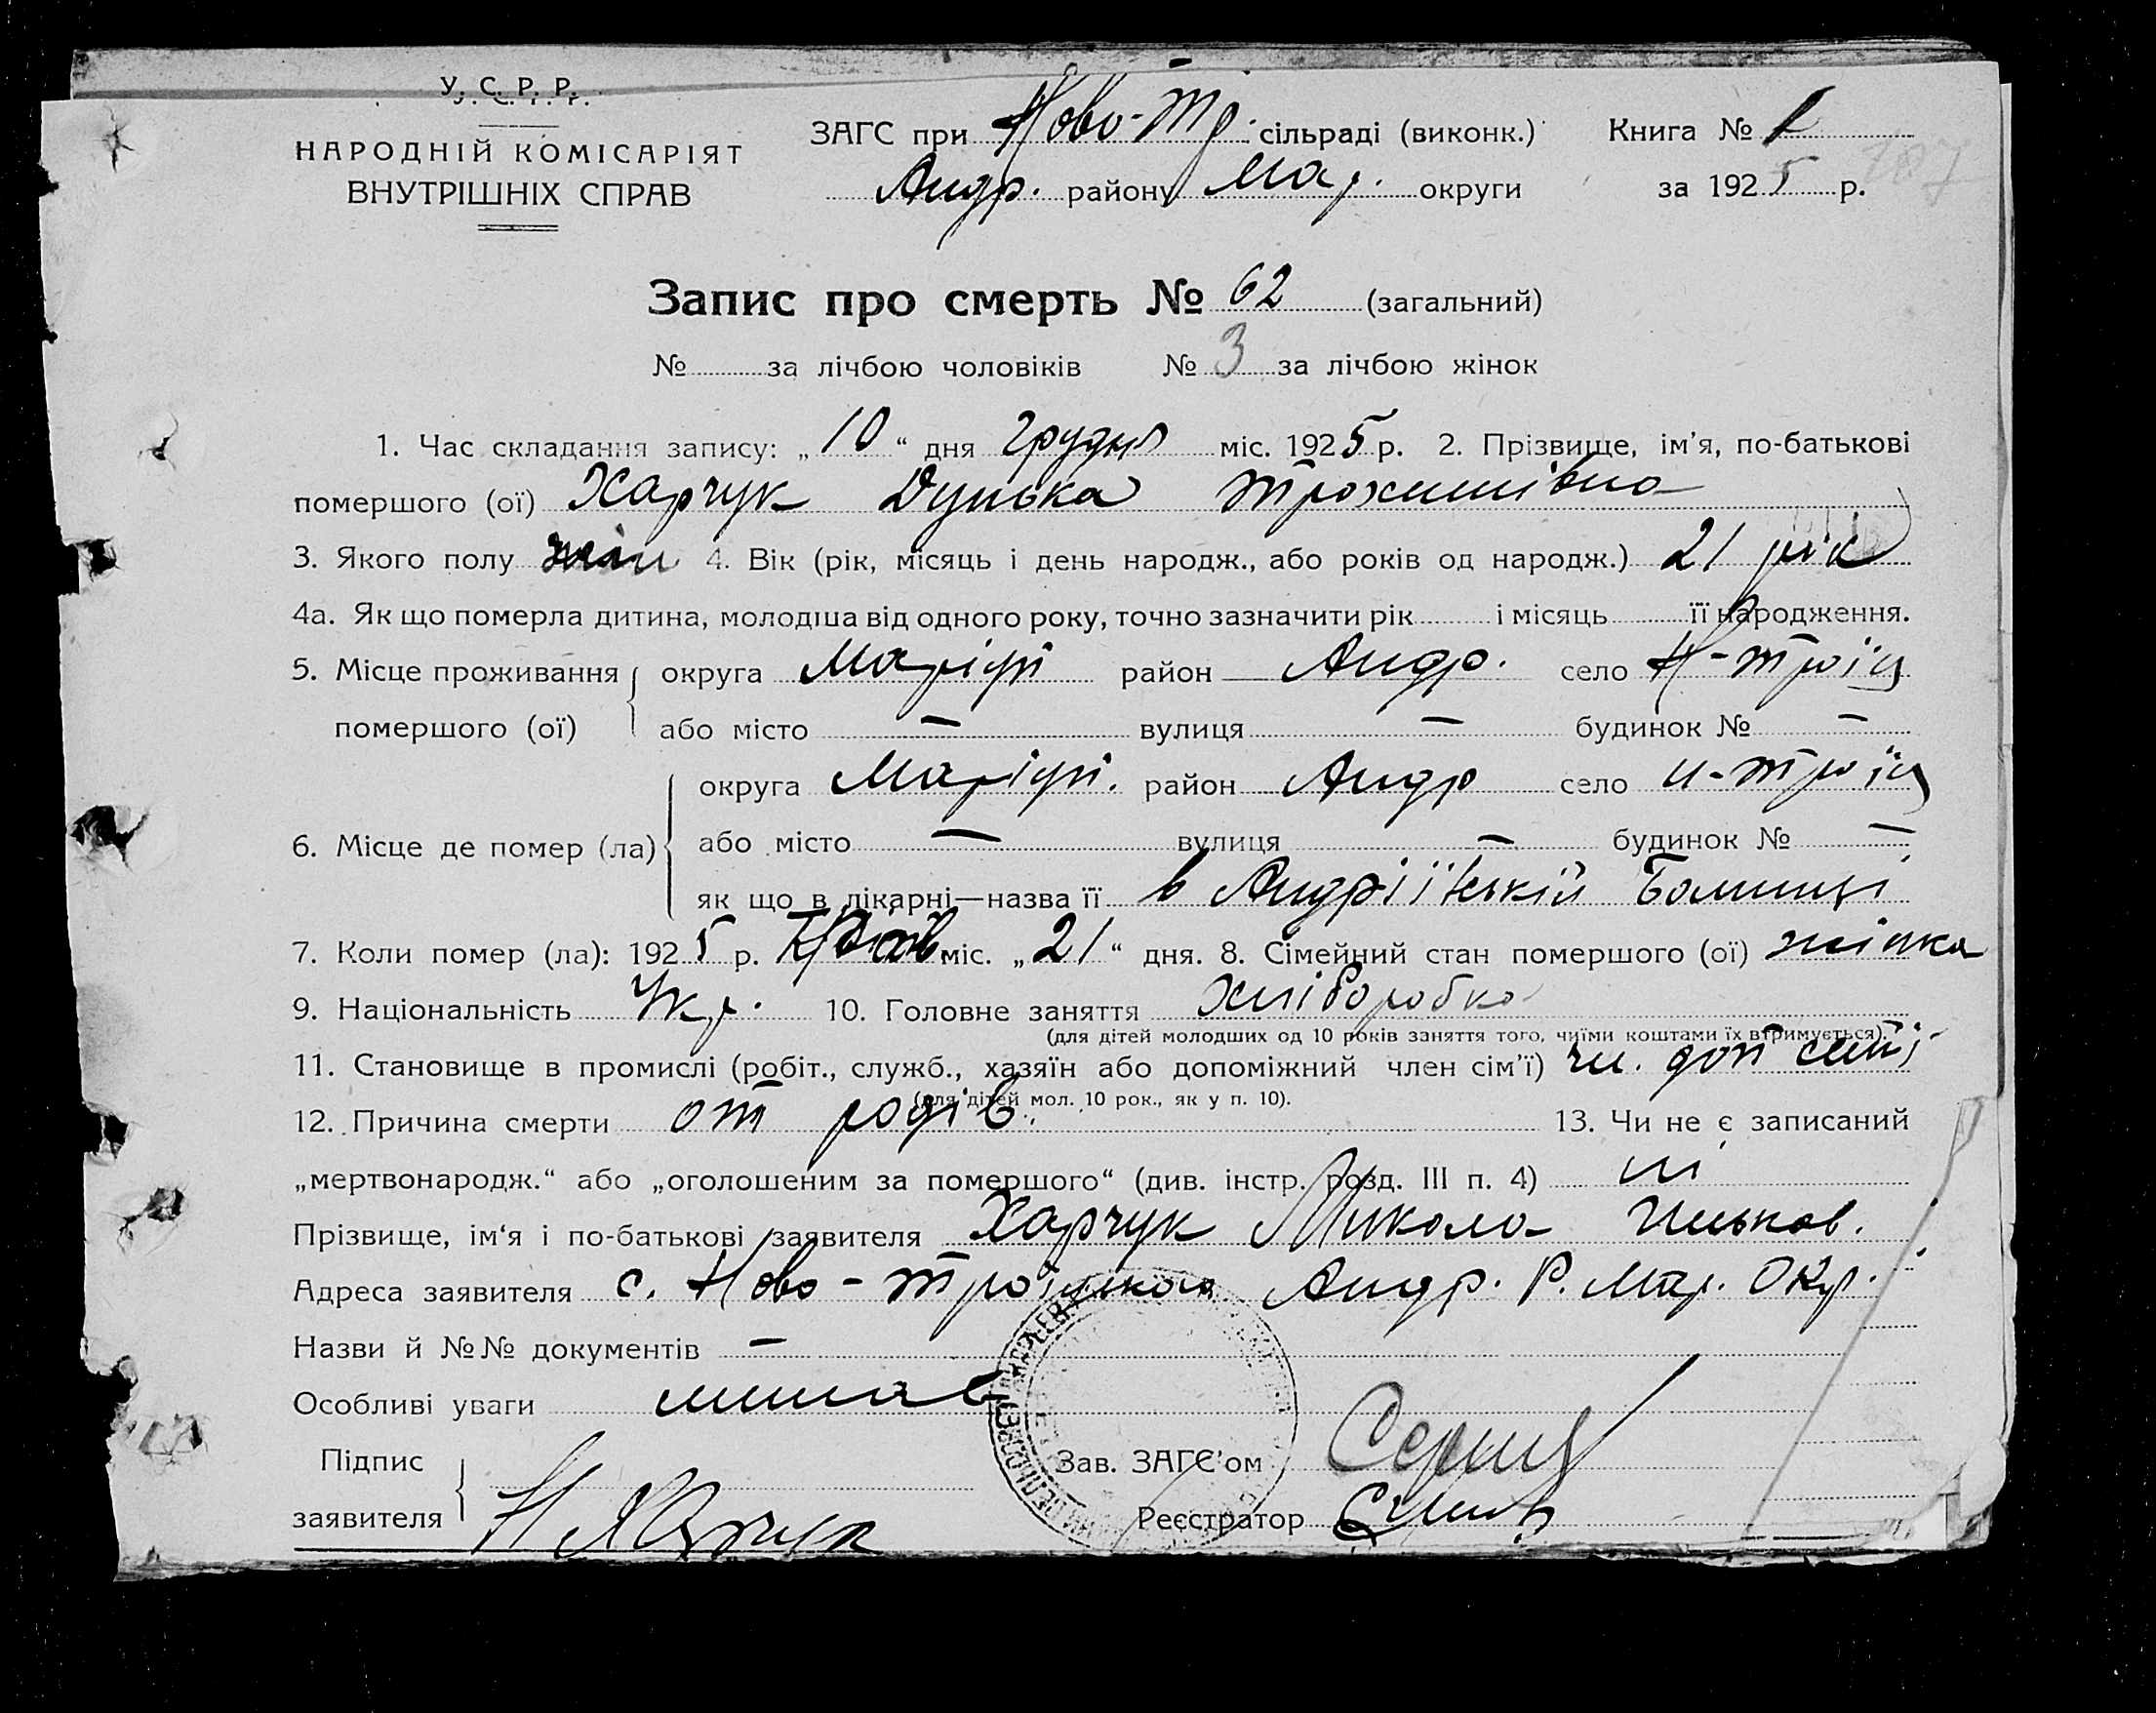 У. С. Р. Р.
НАРОДНІЙ КОМІСАРІЯТ
ВНУТРІШНІХ СПРАВ
ЗАГС при Ново-Тр. сільраді (виконк.)
Андр. району Мар. округи
Книга №
за 1925 р.
187
Запис про смерть № 62 (загальний)
№ за лічбою чоловіків № 3 за лічбою жінок
1. Час складання запису: „10“ дня грудня міс. 1925 р. 2. Прізвище, ім’я, по-батькові
помершого (ої) Харчук Дунька Трохимівна
3. Якого полу жін 4. Вік (рік, місяць і день народж., або років од народж.) 21 рік
4а. Як що померла дитина, молодша від одного року, точно зазначити рік і місяць її народження.
5. Місце проживання округа Маріуп район Андр. село Н-Троіц
помершого (ої) або місто — вулиця — будинок № —
округа Маріуп. район Андр село Н-Троїц
6. Місце де помер (ла) або місто — вулиця — будинок № —
як що в лікарні—назва її в Андріївській Болниці
7. Коли помер (ла): 1925 р. міс. „21“ дня. 8. Сімейний стан помершого (ої) жінка
9. Національність Укр. 10. Головне заняття Хліборобка
(для дітей молодших од 10 років заняття того, чиїми коштами їх втримується).
11. Становище в промислі (робіт., служб., хазяїн або допоміжний член сім’ї) чл. доп семі
(для дітей мол. 10 рок., як у п. 10).
12. Причина смерти от родів. 13. Чи не є записаний
„мертвонародж.“ або „оголошеним за помершого“ (див. інстр. розд. III п. 4) ні
Прізвище, ім‘я і по-батькові заявителя Харчук Микола
Адреса заявителя с. Ново-Троїцькоя Андр. Р. Мар. Окр.
Назви й №№ документів —
Особливі уваги немає
Підпис
заявителя Н Харчук
Зав. ЗАГС’ом
Реєстратор